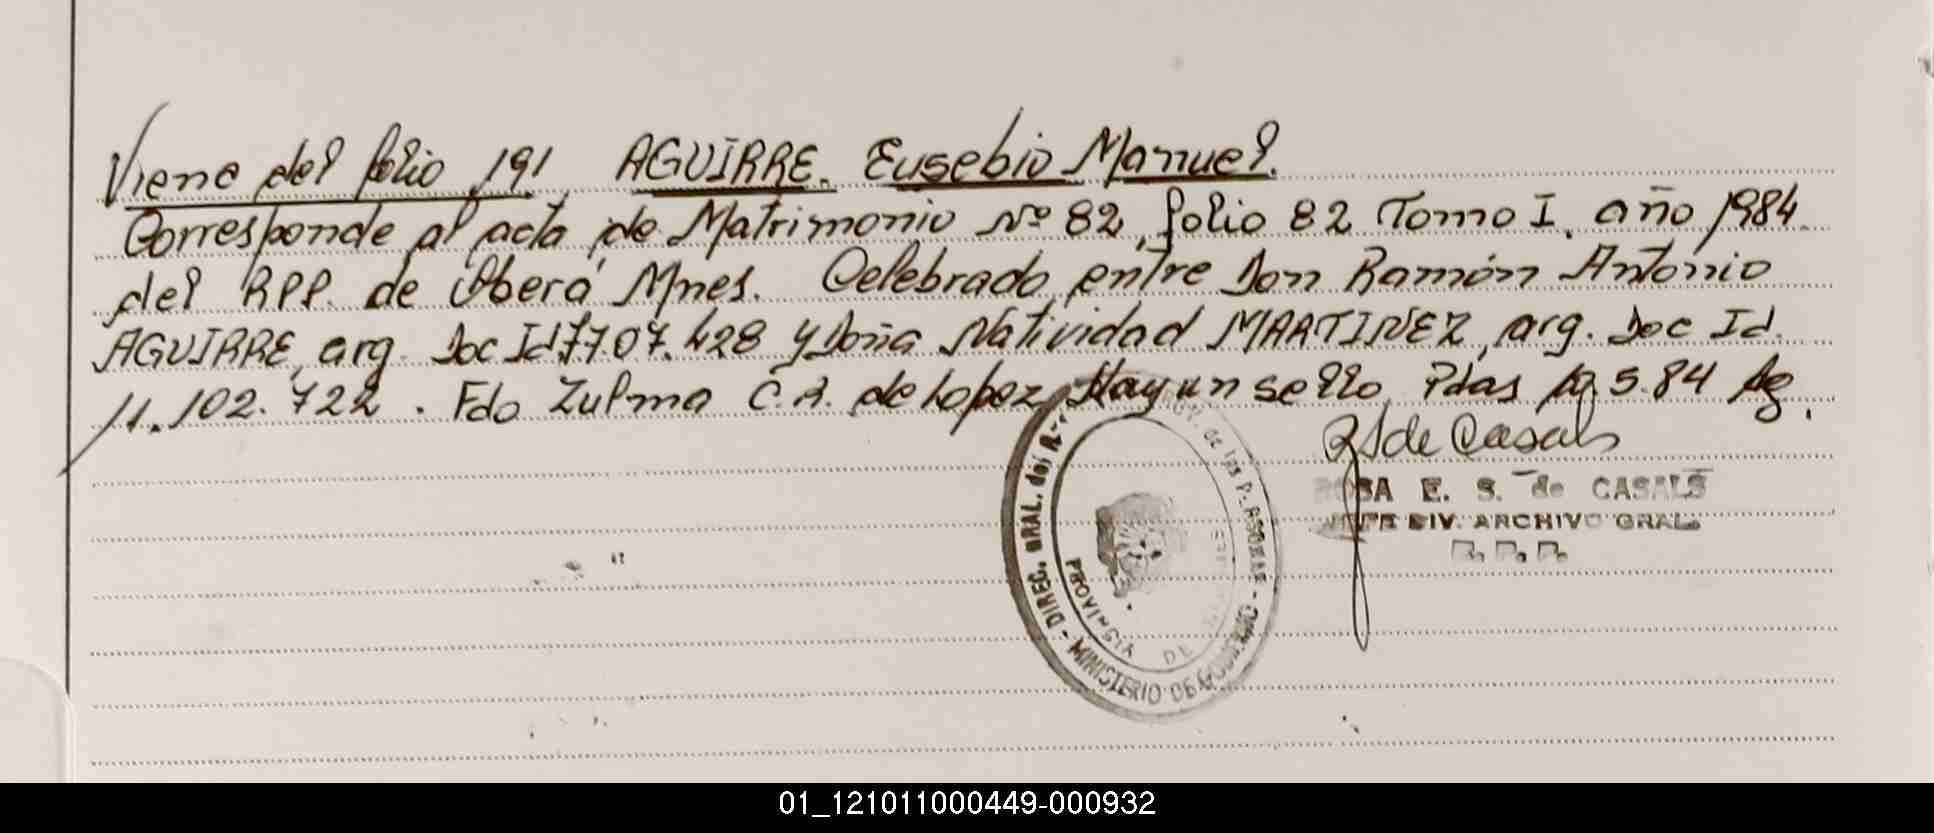 Viene del folio 191 AGUIRRE. Eusebio Manuel.
Corresponde al acta de Matrimonio Nº 82, folio 82 Tomo I. año 1984.
del RPP. de Oberá Mnes. Celebrado entre Don Ramón Antonio
AGUIRRE, arg. Doc Id 7.707.428 y Doña Natividad MARTINEZ, arg. Doc Id.
11.102.722. Fdo Zulma C. A. de Lopez Hay un sello. Pdas 5.84
de Casals
ROSA E. S. de CASALS
JEFE DIV. ARCHIVO GRAL.
R. P. P.
DIREC. GRAL. del R. de las P.
PROVINCIA DE
MINISTERIO DE GOBIERNO
01_121011000449-000932